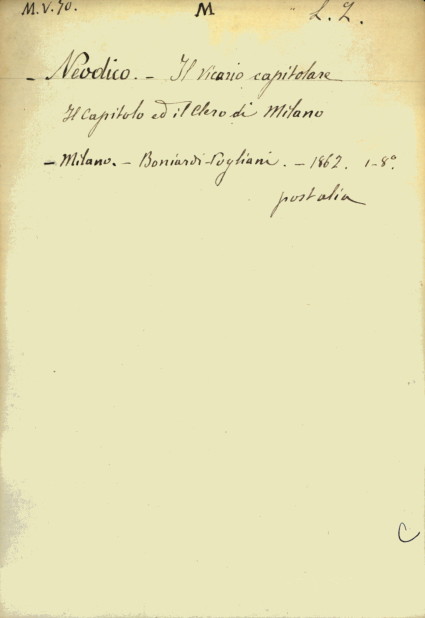 M.V.70. M L. L.
- Neodico. - Il Vicario capitolare
Il Capitolo ed il Clero di Milano
- Milano. - Boniardi-Pogliani. - 1862. 1-8°.
post alia
C